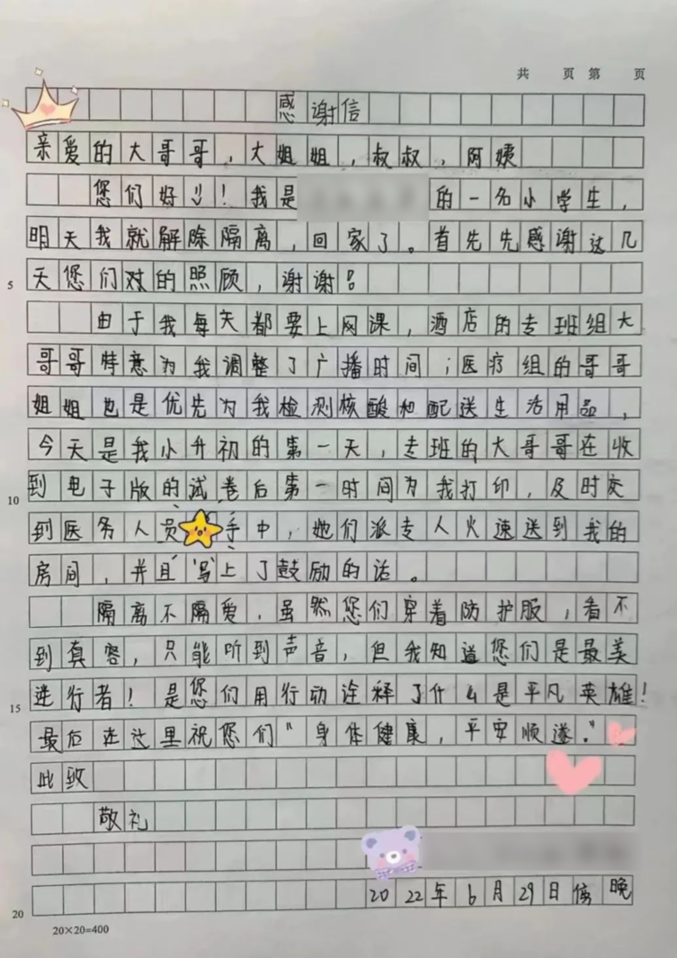 共 页 第 页
感谢信
亲爱的大哥哥，大姐姐，叔叔，阿姨
您们好!!! 我是 的一名小学生，
明天我就解除隔离，回家了。首先先感谢这几
5 天您们对的照顾，谢谢!
由于我每天都要上网课，酒店的专班组大
哥哥特意为我调整了广播时间；医疗组的哥哥
姐姐也是优先为我检测核酸和配送生活用品，
今天是我小升初的第一天，专班的大哥哥在收
10 到电子版的试卷后第一时间为我打印，及时交
到医务人员 手中，她们派专人火速送到我的
房间，并且写上了鼓励的话。
隔离不隔爱，虽然您们穿着防护服，看不
到真容，只能听到声音，但我知道您们是最美
15 逆行者！是您们用行动诠释了什么是平凡英雄！
最后在这里祝您们“身体健康，平安顺遂。”
此致
敬礼
20 2022年6月29日傍晚
20×20=400